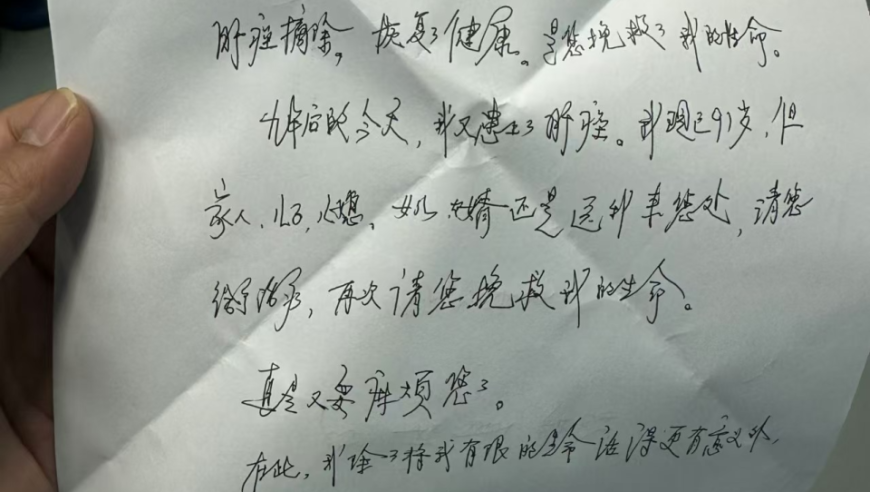 肝癌摘除，恢复了健康。是您挽救了我的性命。
九年后的今天，我又患上了肝癌。我现已91岁，但
家人、儿子、儿媳、女儿、女婿还是送我来您处，请您
给予治疗，再次请您挽救我的生命。
真是又要麻烦您了。
在此，我除了将我有限的生命活得更有意义外，